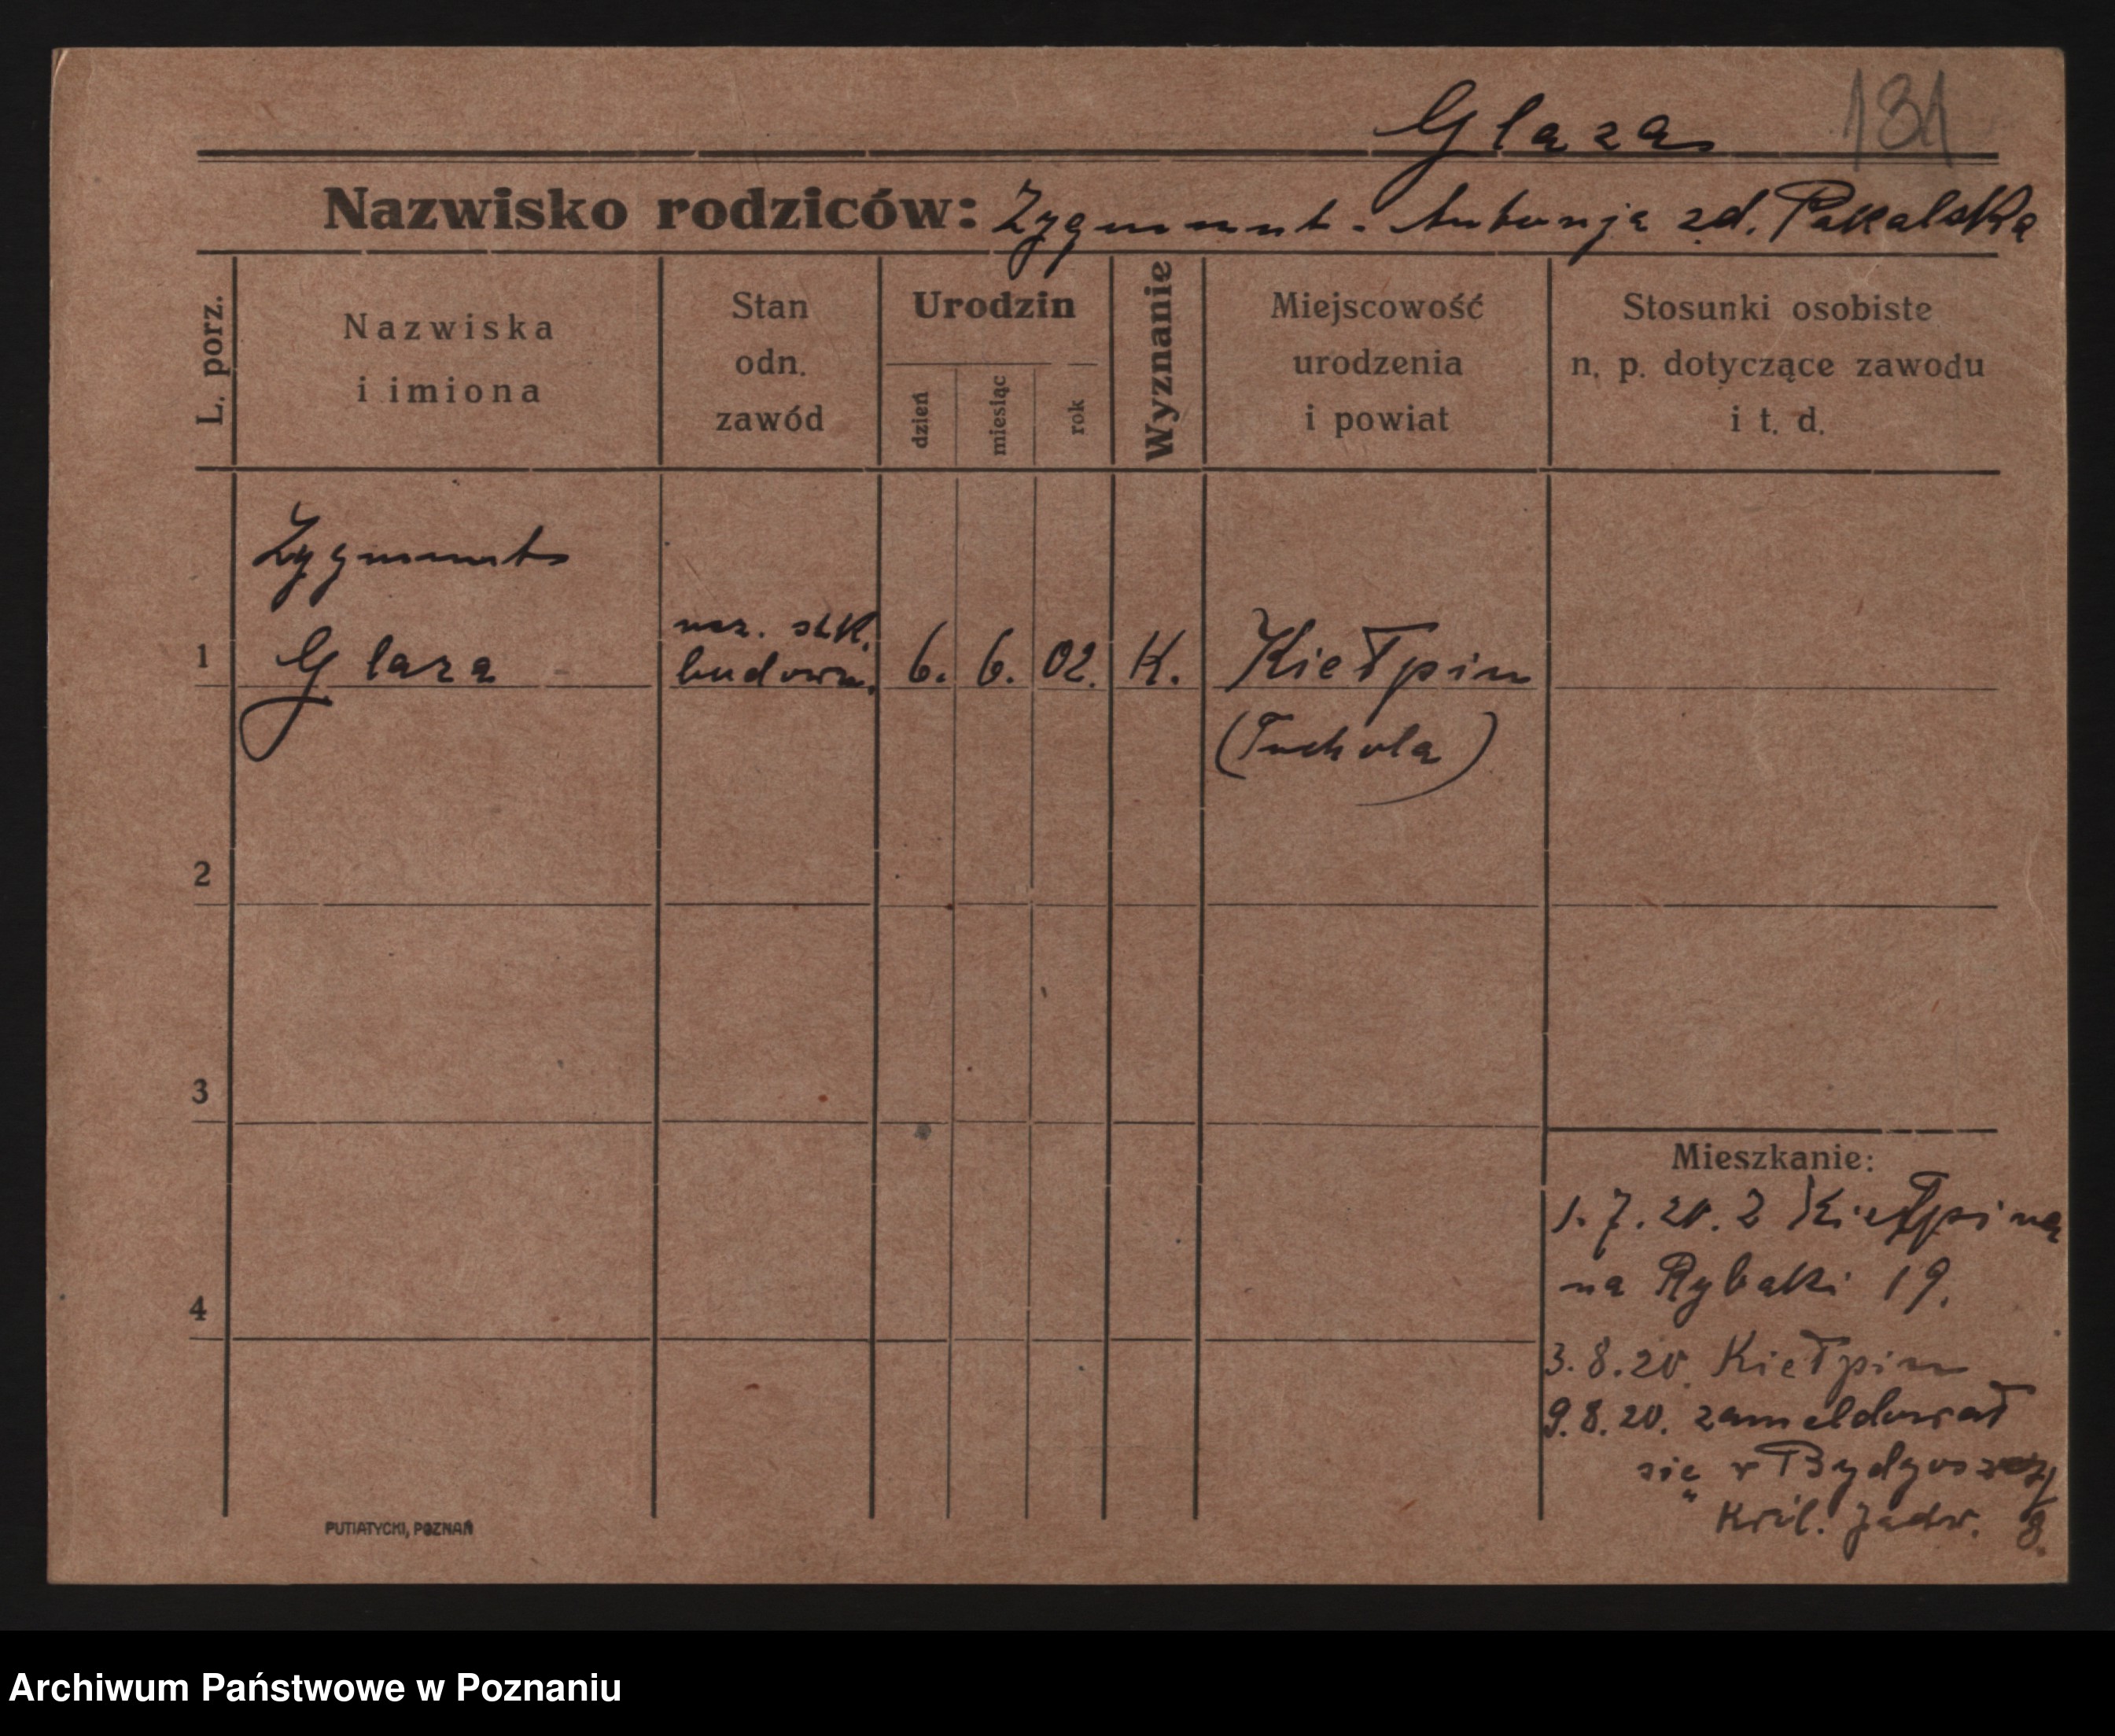 Glaza 131
Nazwisko rodziców: Zygmunt - Antonja zd. Pakalska
L. porz.
Nazwiska
i imiona
Stan
odn.
zawód
Urodzin
dzień
miesiąc
rok
Wyznanie
Miejscowość
urodzenia
i powiat
Stosunki osobiste
n. p. dotyczące zawodu
i t. d.
Zygmunt
ucz. szk.
1 Glaza budown. 6. 6. 02. K. Kiełpin
(Tuchola)
2
3
Mieszkanie:
1. 7. 20. z Kiełpina
na Rybaki 19.
4
3. 8. 20. Kiełpin
9. 8. 20. zameldował
się w Bydgoszczy
Król. Jadw. 8.
PUTIATYCKI, POZNAŃ
Archiwum Państwowe w Poznaniu